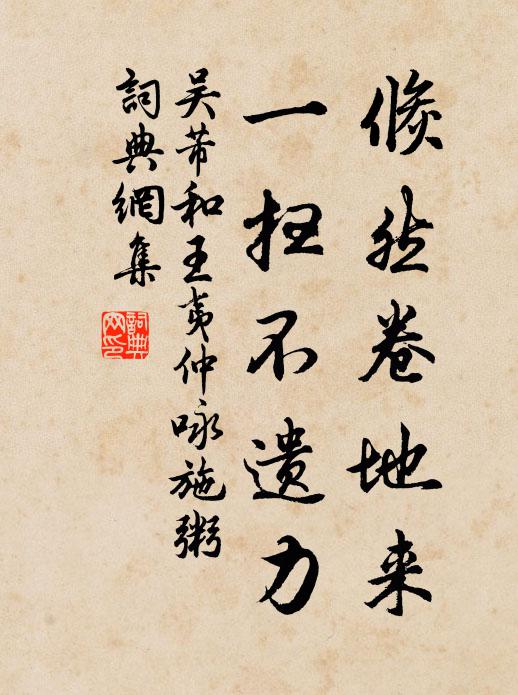 倏然卷地来
一扫不遗力
吴芾和王夷仲咏施粥
詞典網集
詞典
网印